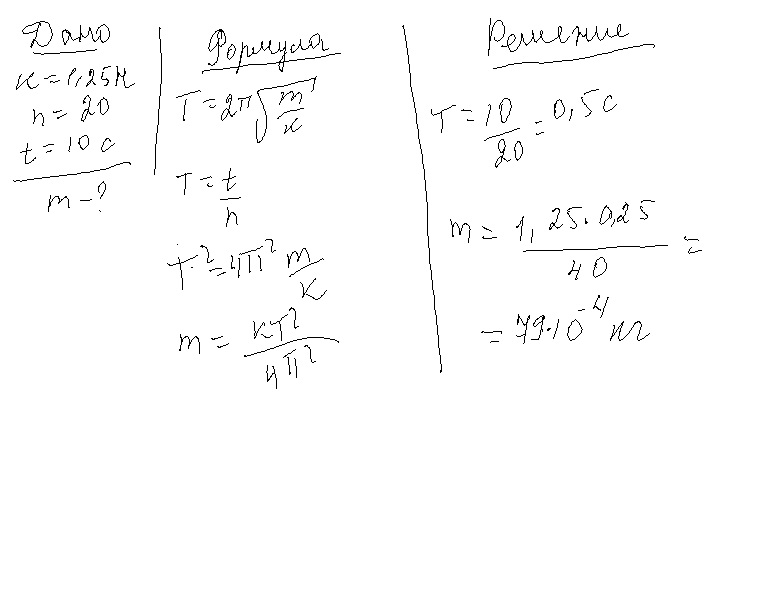 Дано
к = 1,25 Н
n = 20
t = 10 с
m - ?
Формула
T = 2π√(m/к)
T = t/n
T² = 4π² m/к
m = кT²/4π²
Решение
T = 10/20 = 0,5 с
m = 1,25·0,25/40 =
= 79·10⁻⁴ кг